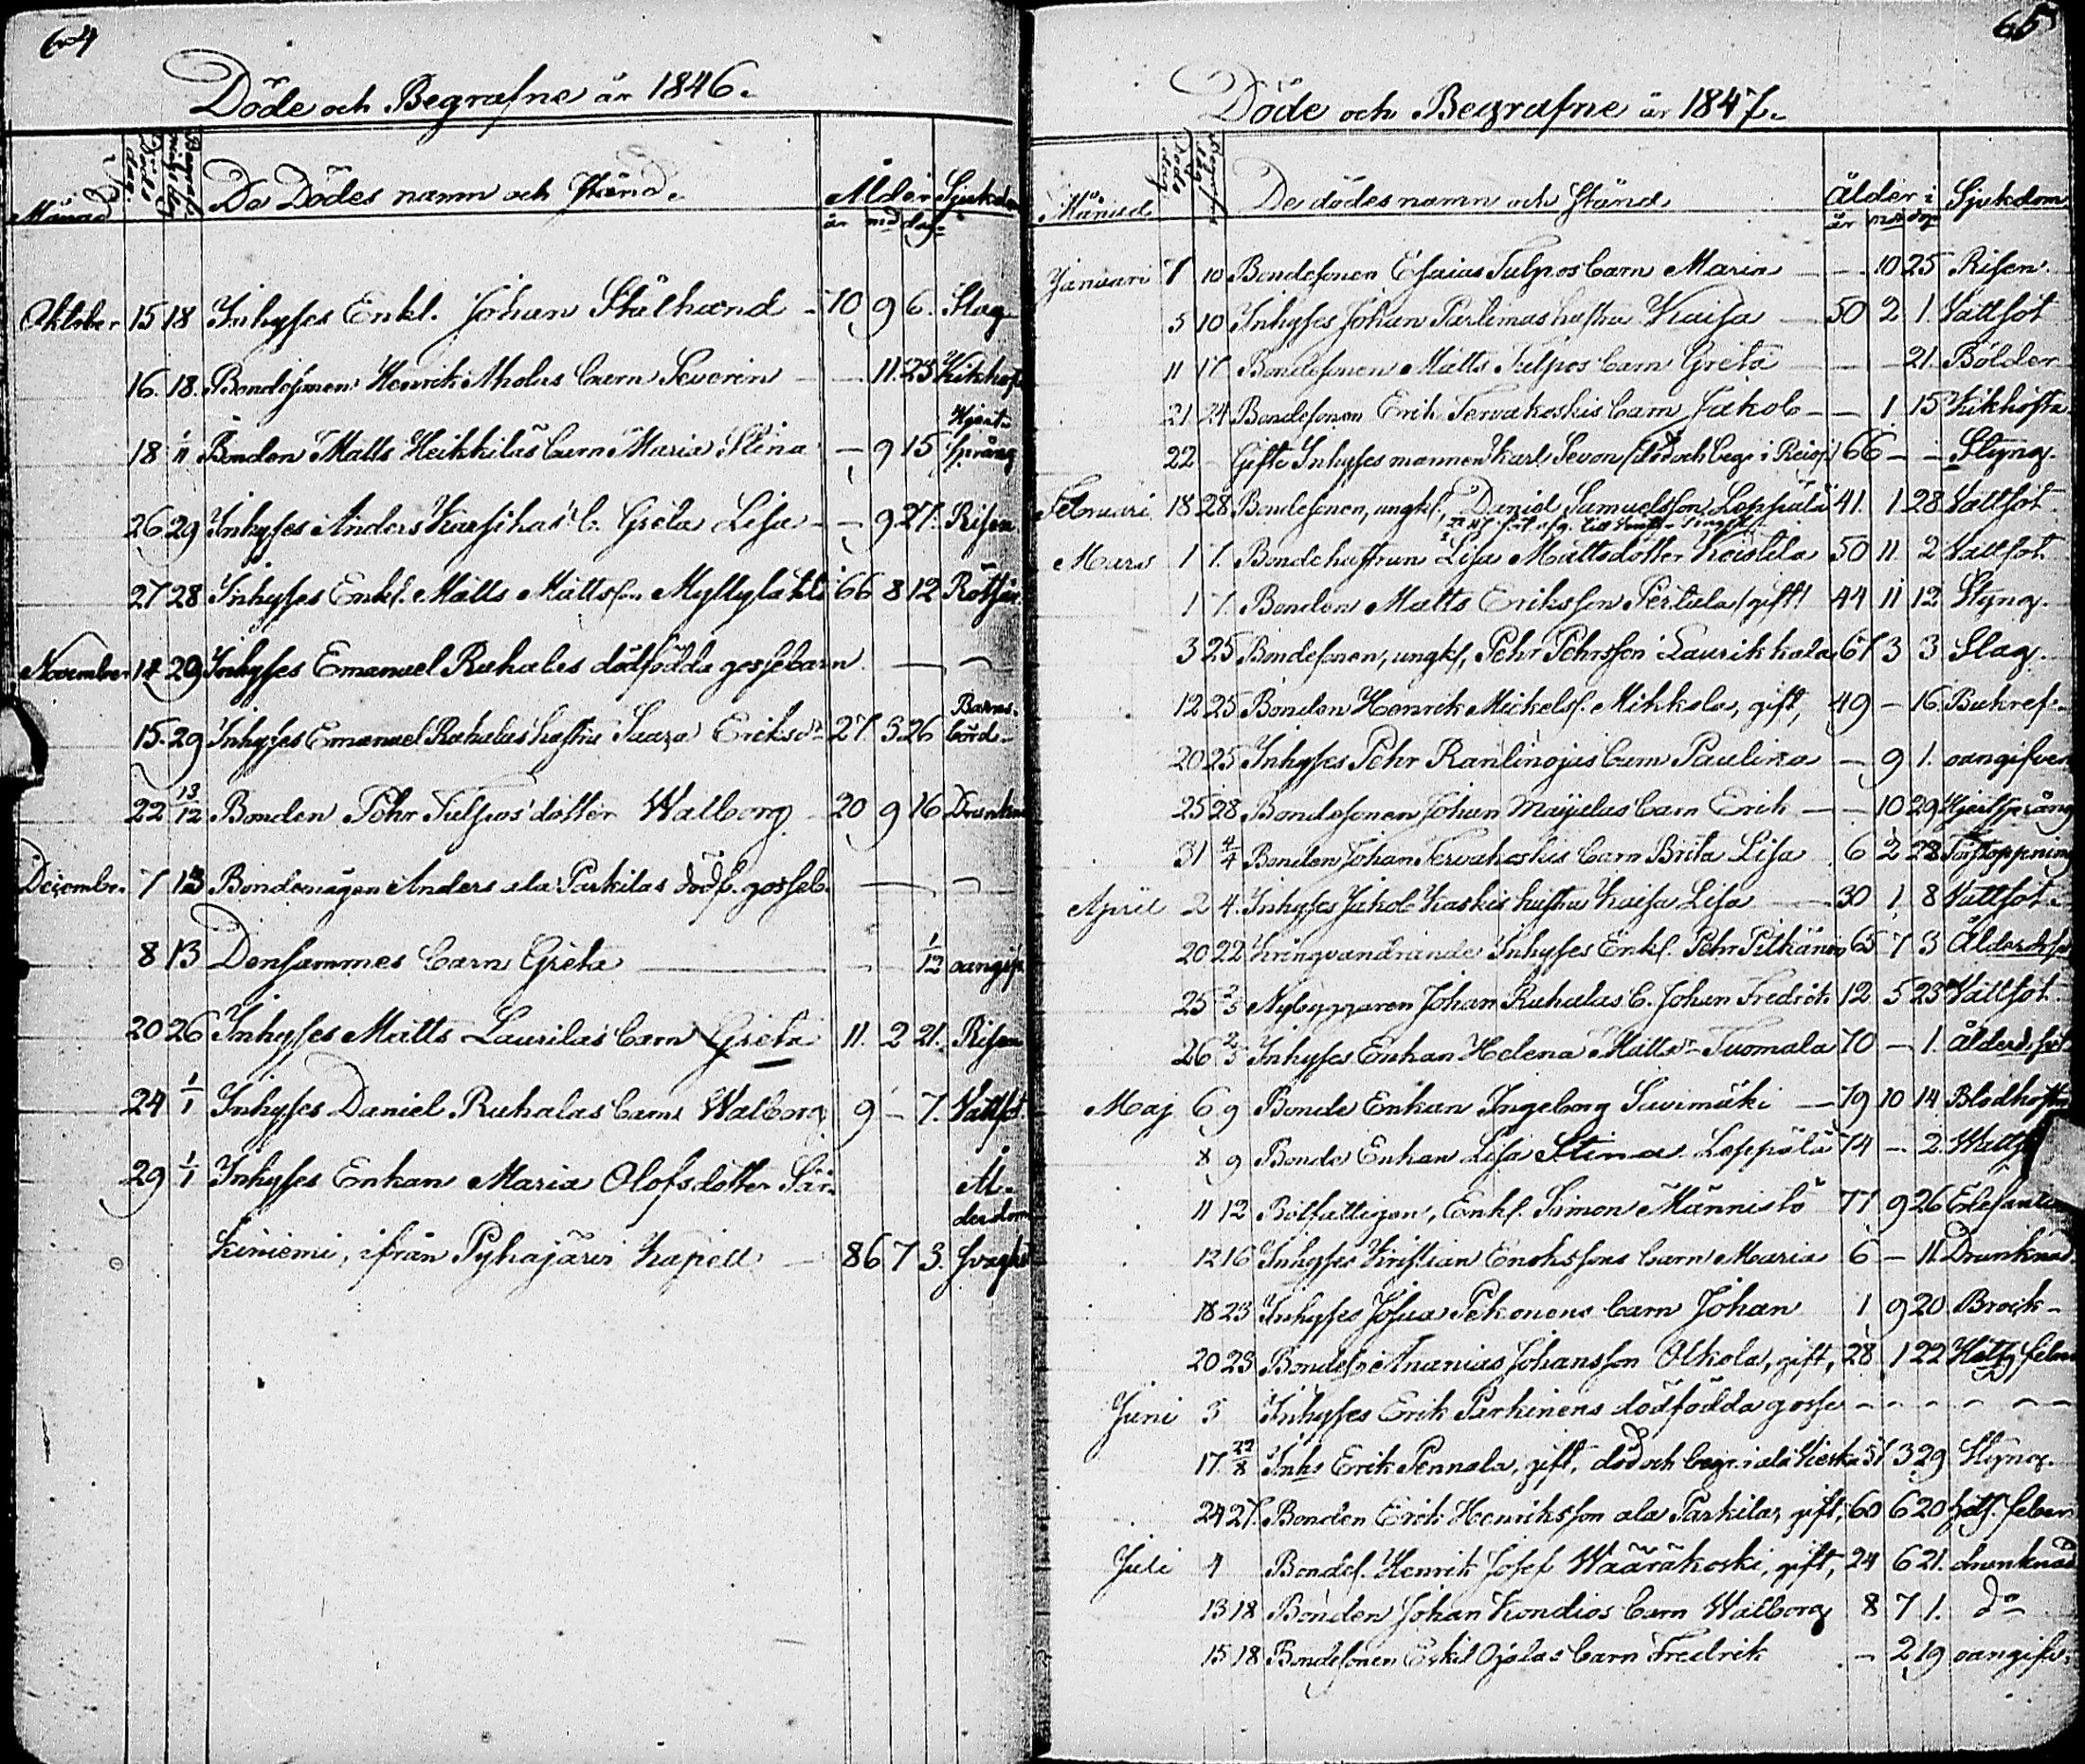 64
Döde och Begrafne år 1846.
Månad Döds dag Begrafnings dag De Dödes namn och Stånd. Ålder Sjukdom
år md dag
Oktober 15 18 Inhyses Enkl. Johan Stålhand - 70 9 6. Slag
16. 18. Bondesonen Henrik Aholas barn Severin - - 11. 25 Kikhost
Hjert-
18 1/11 Bonden Matts Heikkiläs barn Maria Stina - 9 15 språng
26 29 Inhyses Anders Karsikas b. Greta Lisa - - 9 27. Risen
27 28 Inhyses Enkl. Matts Mattsson Myllylahti 66 8 12 Rötfeber
November 14 29 Inhyses Emanuel Ruhalas dödfödda gossebarn — —
Barns-
15. 29 Inhyses Emanuel Ruhalas hustru Saara Eriksdr 27 3 26 börd.
22 13/12 Bonden Pehr Tulpos dotter Walborg 20 9 16 Drunkn
December. 7 13 Bondemågen Anders ala Parkilas dödf. gosseb. — —
8 13 Densammes barn Greta — - 1/12 oangif.
20 26 Inhyses Matts Laurilas barn Greta 11. 2 21. Risen
24 1/1 Inhyses Daniel Ruhalas barn Walborg 9 - 7. Vattsot.
29 1/1 Inhyses Enkan Maria Olofsdotter Sär- Ål-
derdom
kiniemi, ifrån Pyhajärvi Kapell — 86 7 3. svaghet
65
Döde och Begrafne år 1847.
Månad Döds dag Begrafn. dag De dödes namn och Stånd Ålder i Sjukdom
år md dag
Januari 7 10 Bondesonen Esaias Tulpos barn Maria — - 10 25 Risen.
5 10 Inhyses Johan Parlimas hustru Kaisa — 50 2 1. Vattsot
11 17. Bondesonen Matts Tulpos barn Greta — - - 21. Bölder
21 24 Bondesonen Erik Tervakoskis barn Jakob - - 1 15 Kikhosta
22 - Gifte Inhyses mannen Karl Sevon (död och begr. i Reisj.) 66 - - Styng.
Februari 18 28 Bondesonen, ungkl, Daniel Samuelsson Leppälä 41. 1 28 Vattsot.
Mars 1 7. Bondehustrun Lisa Mattsdotter Koistila 50 11 2 Vattsot.
1 7. Bonden Matts Eriksson Pertula (gift) 44 11 12 Styng.
3 25 Bondesonen, ungkl, Pehr Pehrsson Laurikkala 67 3 3 Slag.
12 25 Bonden Henrik Mickelss. Mikkola, gift, 49 - 16. Bukref.
20 25 Inhyses Pehr Ranlinojas barn Paulina - 9 1. oangifven
25 28 Bondesonen Johan Mäyläs barn Erik - - 10 29 Hjertspräng
31 4/4 Bonden Johan Tervakoskis barn Brita Lisa 6 2 28 Förstoppning
April 2 4. Inhyses Jakob Kaskis hustru Kaisa Lisa — 30 1 8 Vattsot.
20 22 Kringvandrande Inhyses Enkl. Pehr Pitkänen 65 7 3 Ålderdsv
25 2/5 Nybyggaren Johan Ruhalas b. Johan Fredrik 12 5 23 Vattsot
26 2/5 Inhyses Enkan Helena Mattsdr Tuomala 70 - 1. ålderd. sv.
Maj 6 9 Bonde Enkan Ingeborg Savimäki — 79 10 14 Blodhosta
8 9 Bonde Enkan Lisa Stina Leppälä 74 - 2. Watts
11 12 Rotfattigen, Enkl. Simon Männistö 77 9 26
12 16 Inhyses Kristian Enokssons barn Maria 6 - 11 Drunknad.
18 23 Inhyses Josua Pekonens barn Johan 1 9 20 Brock-
20 23 Bondes. Ananias Johansson Olkola, gift, 28 1 22 Hetts. feber
Juni 3 Inhyses Erik Parkinens dödfödda gosse - - - - -
17. 22/8 Inhs Erik Pennala, gift, död och begr. i ala Vieska 51 3 29 Styng.
24 27. Bonden Erik Henriksson ala Parkila, gift, 60 6 20 hets. feber
Juli 4 Bondes. Henrik Josef Wääräkoski, gift, 24 6 21. drunknad
13 18 Bonden Johan Kondios barn Walborg 8 7 1. do
15 18 Bondesonen Eskil Ojalas barn Fredrik - 2 19 oangifv.